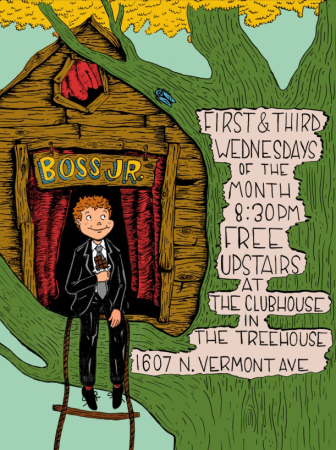 BOSS JR.
FIRST & THIRD
WEDNESDAYS
OF THE
MONTH
8:30PM
FREE
UPSTAIRS
AT
THE CLUBHOUSE
IN
THE TREEHOUSE
1607 N. VERMONT AVE